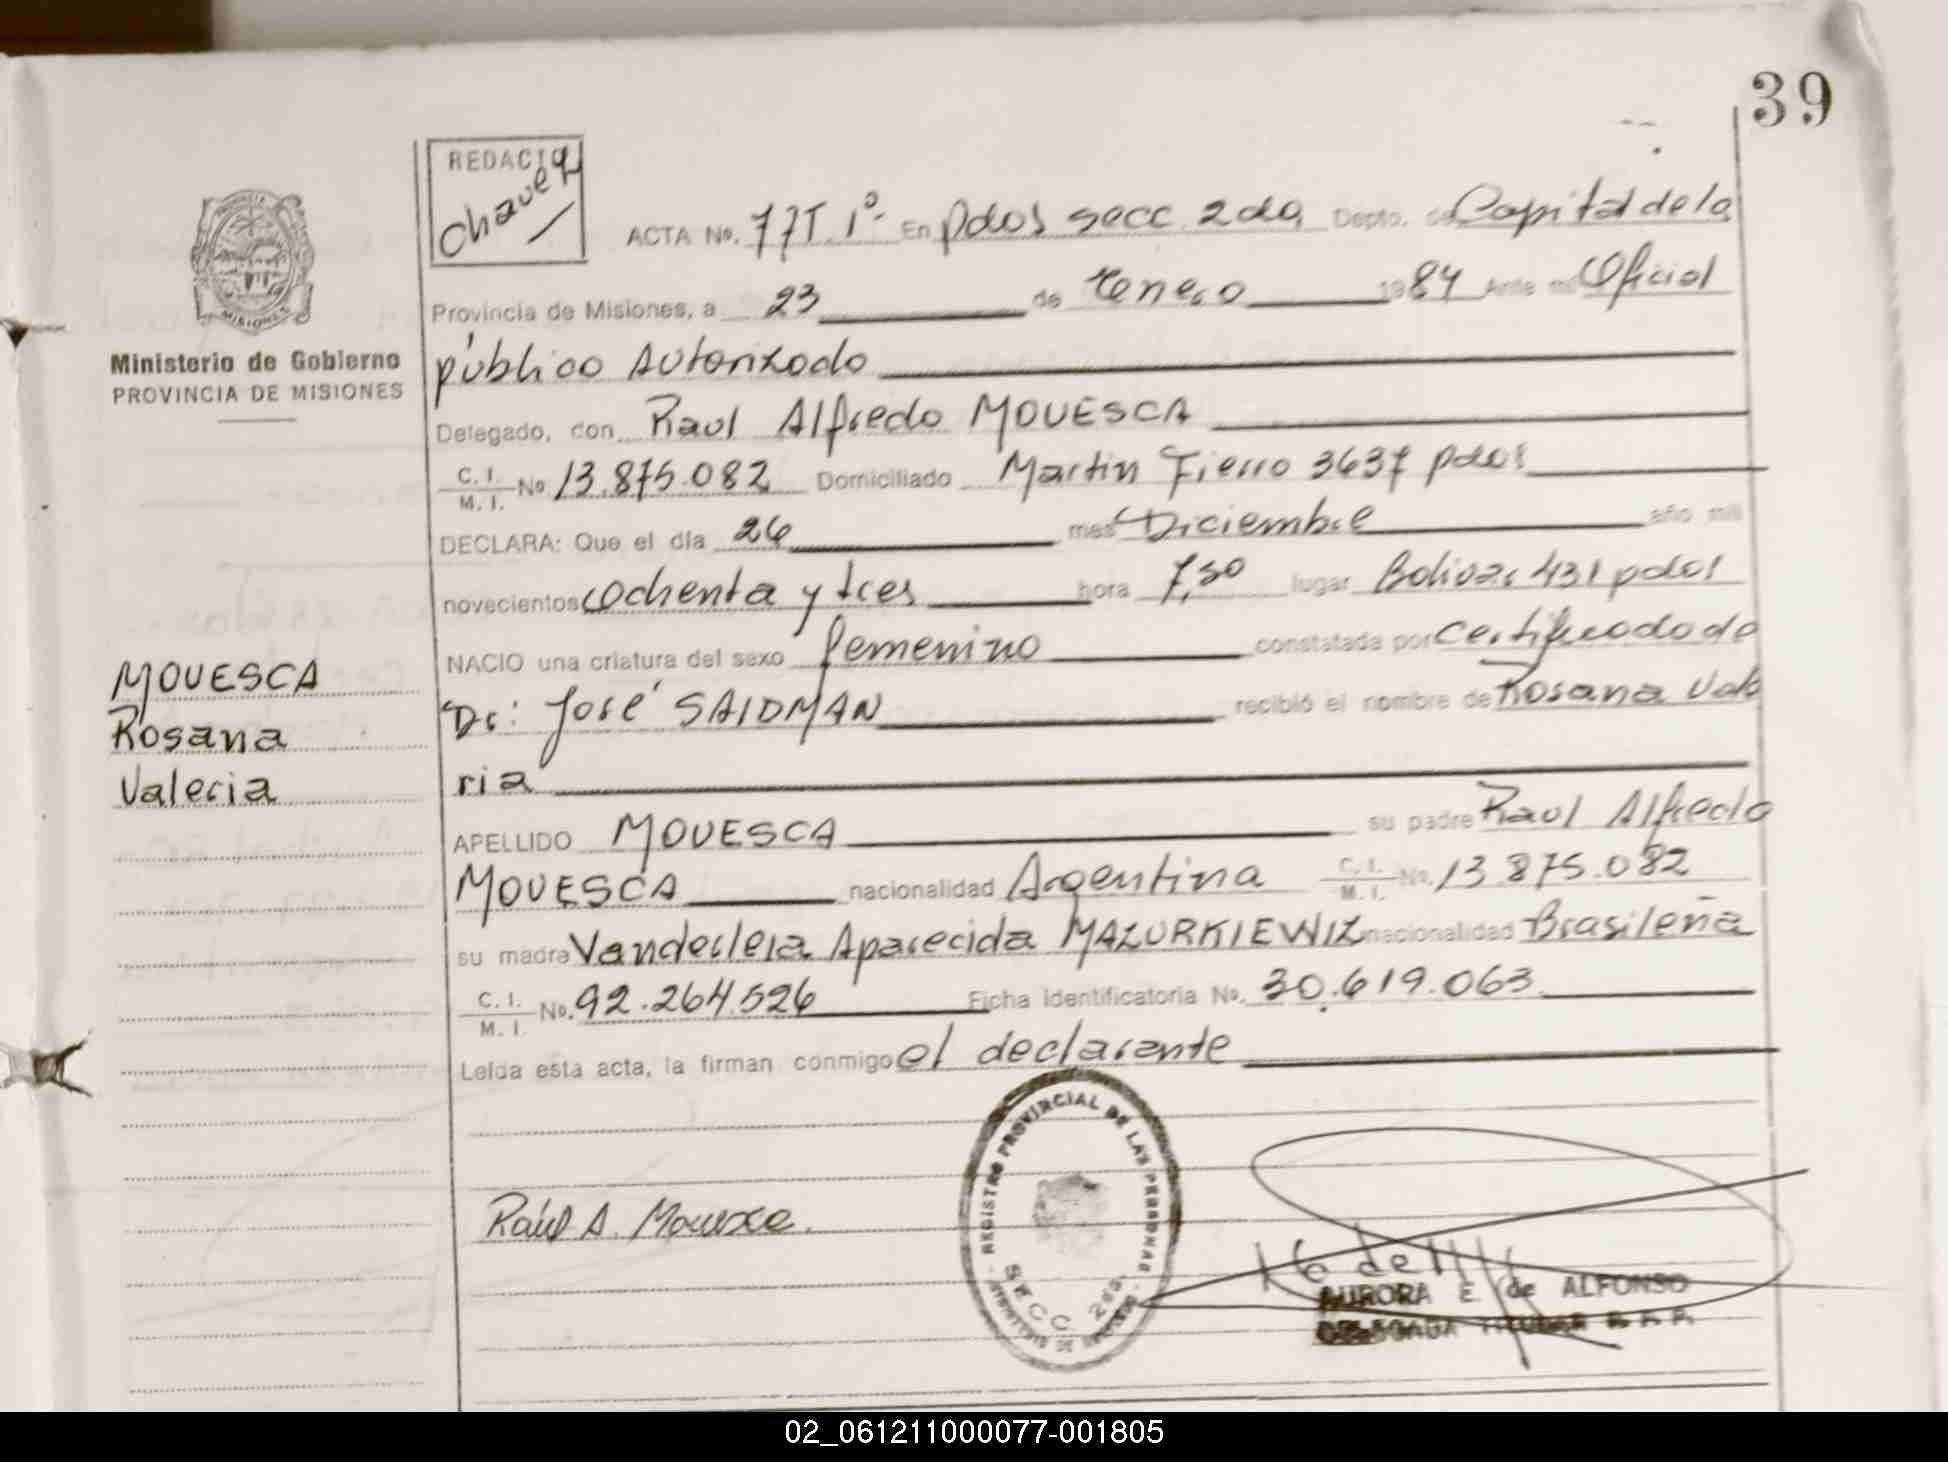 39
REDACTO
Chavez
ACTA No. 77T.1º- En pdas secc 2da Depto. de Capital de la
Provincia de Misiones, a 23 de Enero 1984 Ante mi Oficial
público Autorizado
Ministerio de Gobierno
PROVINCIA DE MISIONES
MISIONES
Delegado, don Raul Alfredo MOVESCA
C. I. M. I. No 13.875.082 Domiciliado Martin Fierro 3637 pdas
DECLARA: Que el día 26 mes Diciembre año mil
novecientos Ochenta y tres hora 7,30 lugar Bolivar 431 pdas
NACIO una criatura del sexo femenino constatada por Certificado de
MOVESCA
Rosana
Valeria
Dr: José SAIDMAN recibió el nombre de Rosana Vale
ria
APELLIDO MOVESCA su padre Raul Alfredo
MOVESCA nacionalidad Argentina C. I. M. I. No. 13.875.082
su madre Vanderleia Aparecida MAZURKIEWIZ nacionalidad Brasileña
C. I. M. I. No. 92.264.526 Ficha identificatoria No. 30.619.063
Leída esta acta, la firman conmigo el declarante
REGISTRO PROVINCIAL DE LAS PERSONAS
SECC 2da.
Raúl A. Mouesca.
AURORA E. de ALFONSO
DELEGADA TITULAR R. P. P.
02_061211000077-001805